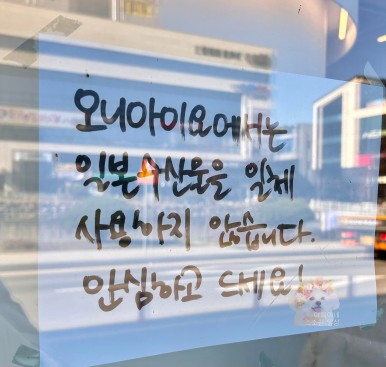 오니아이요에서는
일본수산물을 일체
사용하지 않습니다.
안심하고 드세요!